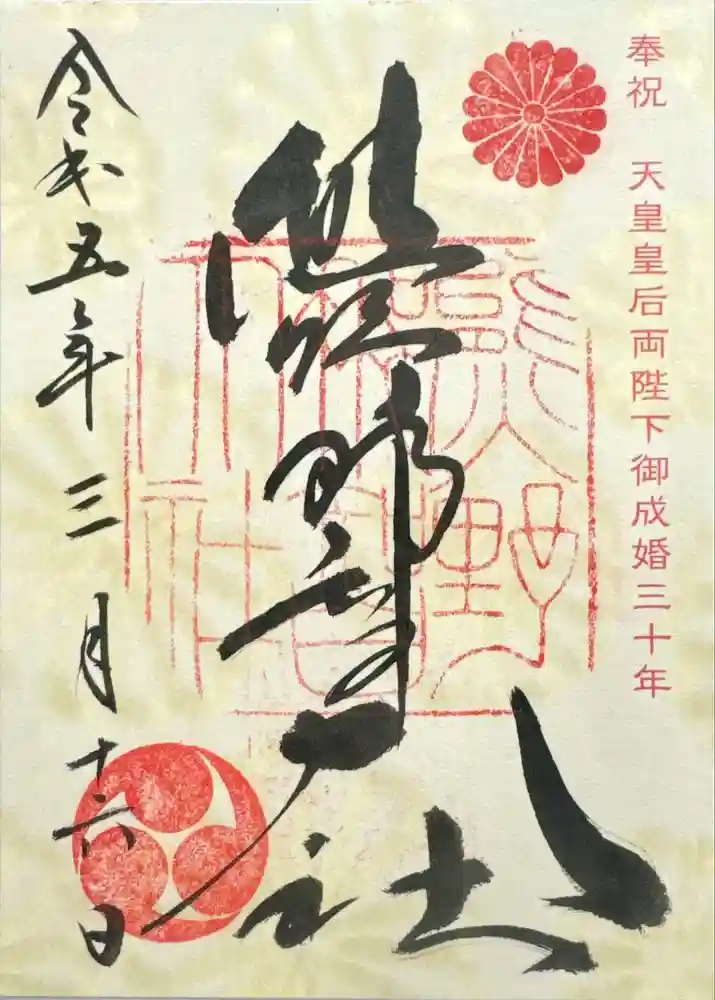 奉祝 天皇皇后両陛下御成婚三十年
熊野大社
令和五年三月十六日